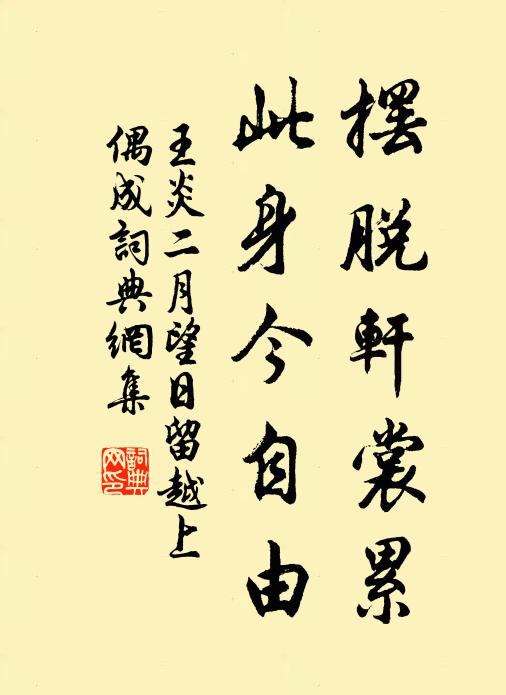 擺脫軒裳累
此身今自由
王炎二月望日留越上
偶成詞典網集
詞典
网印